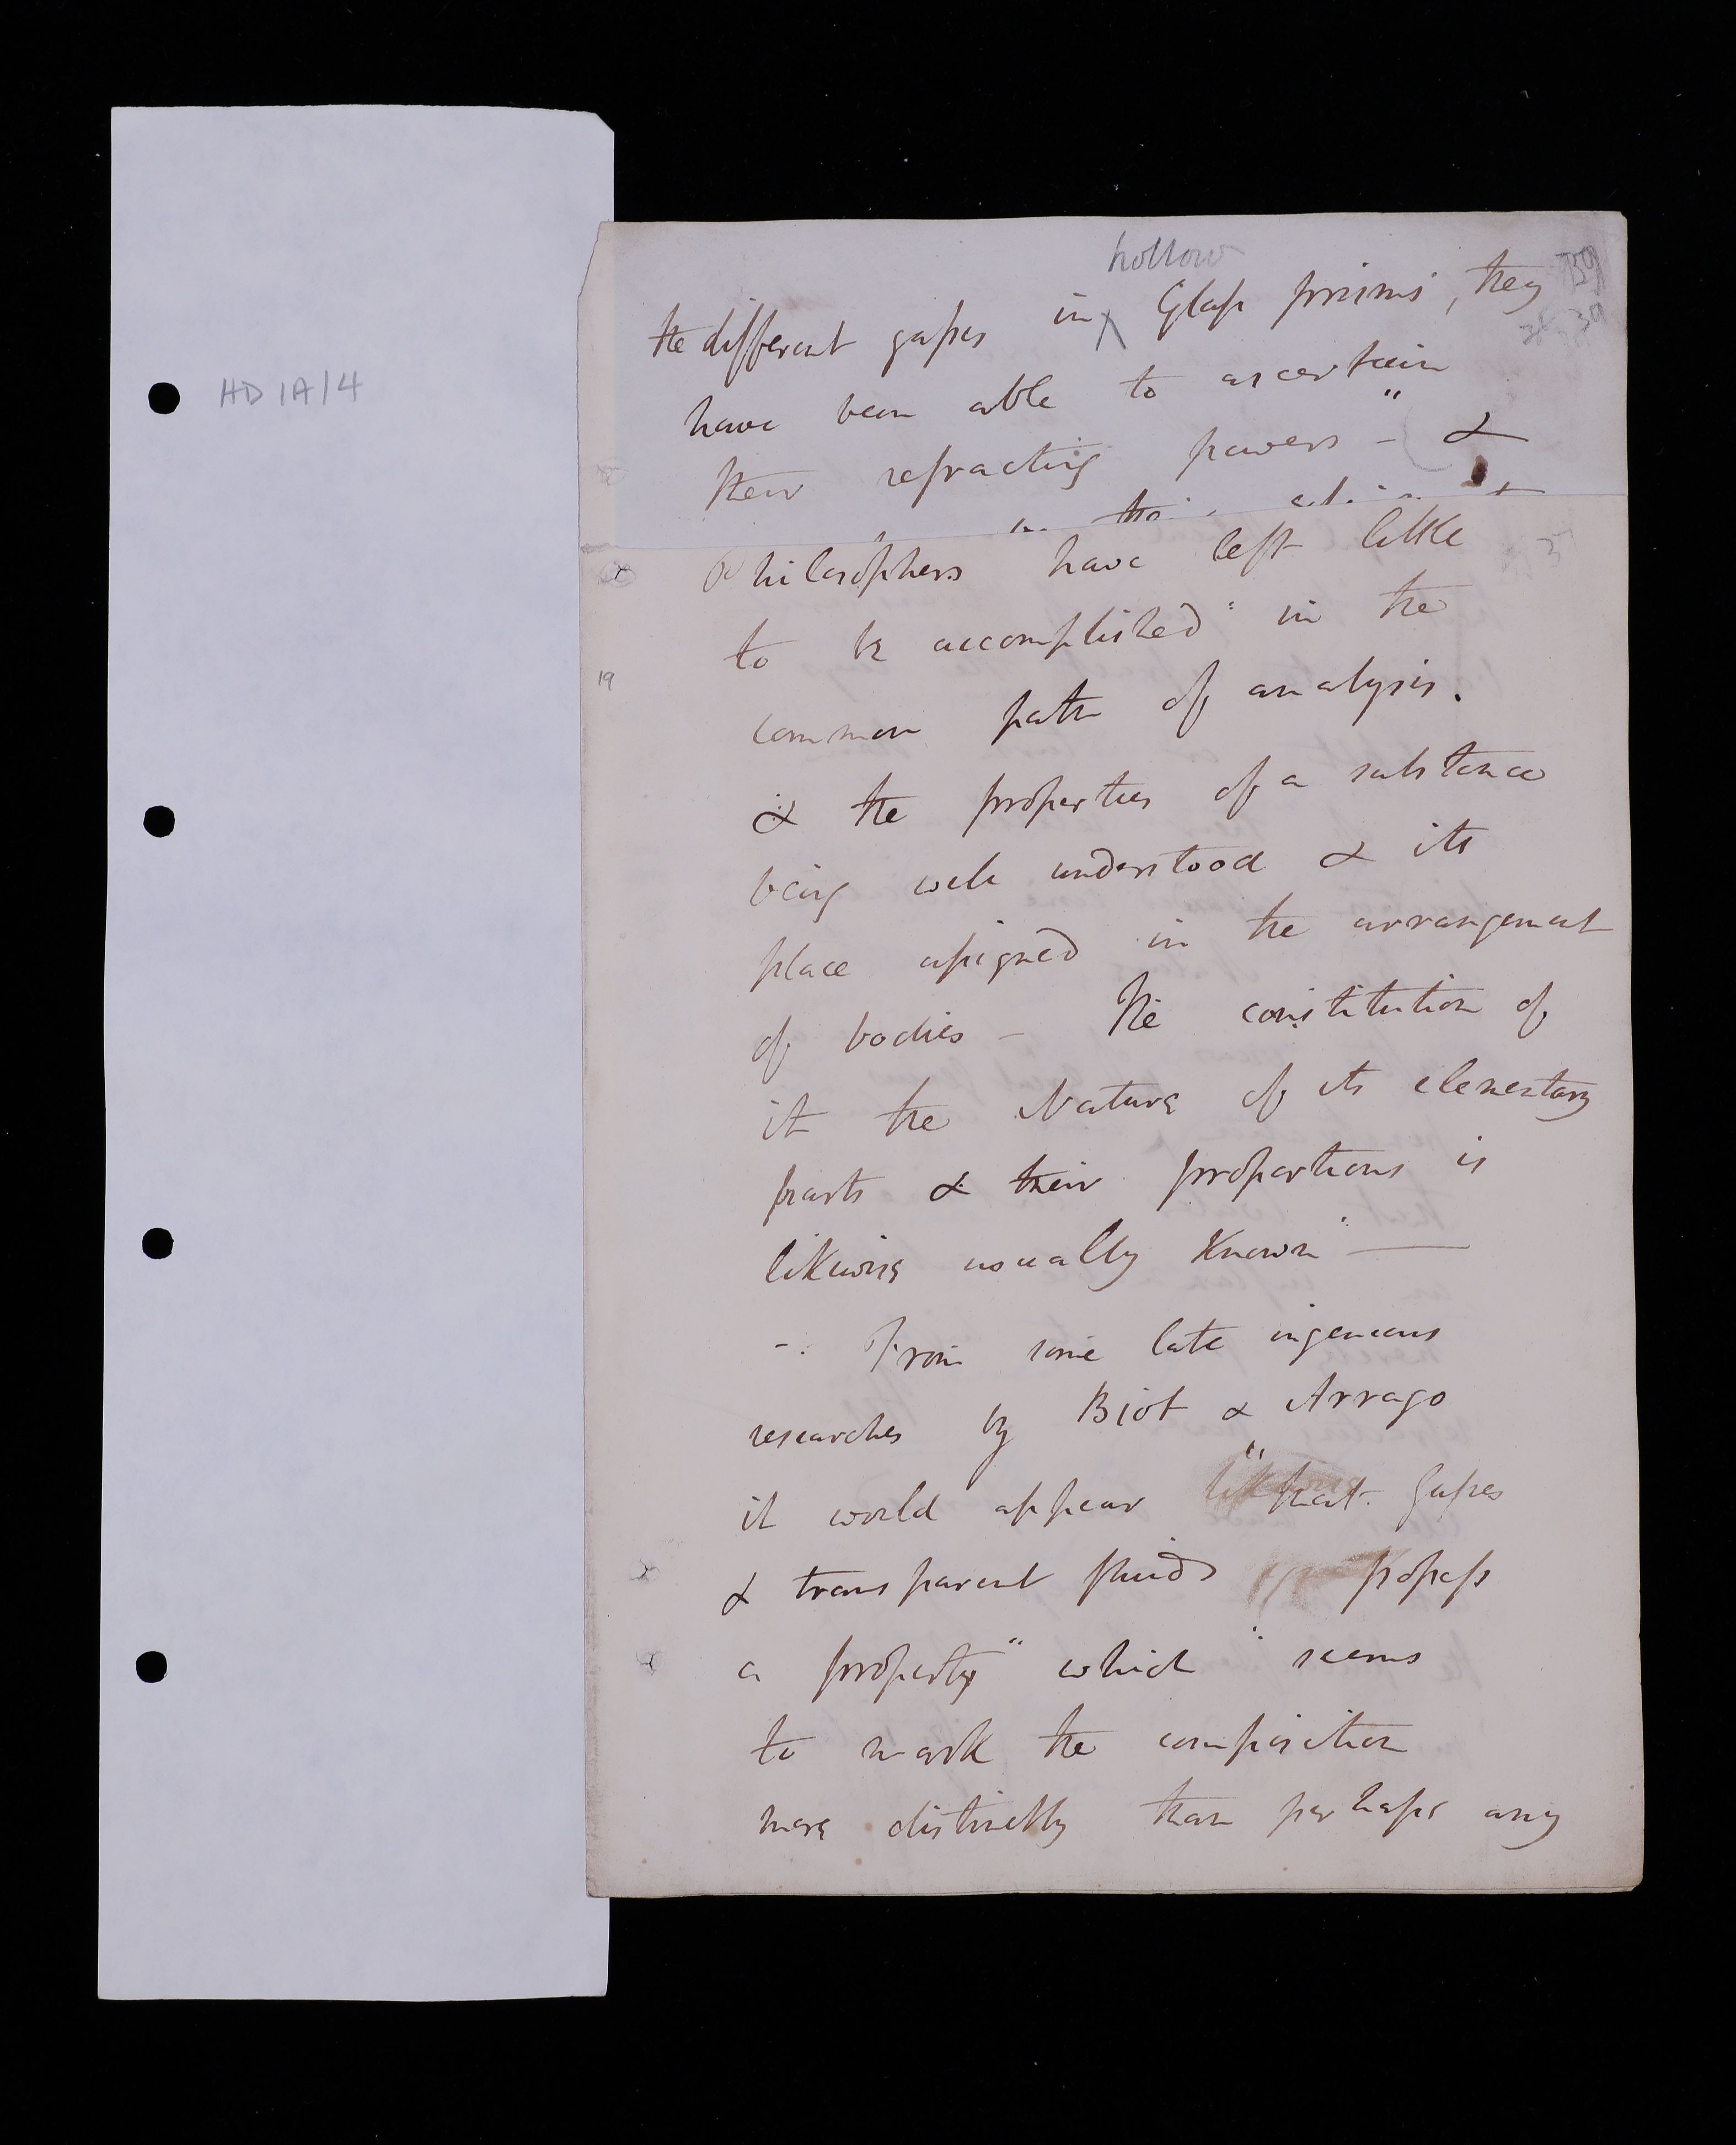 HD 1A/4
hollow
the different gases in Glass prisms, they
39
have been able to ascertain
their refracting powers - &
Philosophers have left little
to be accomplished" in the
19
common path of analysis.
& the properties of a substance
being well understood & its
place assigned in the arrangement
of bodies - The constitution of
it the Nature of its elementary
parts & their proportions is
likewise usually known" —
-: From some late ingenious
researches by Biot & Arrago
it would appear "that gases
& transparent fluids possess
a property" which "seems
to mark the composition
more distinctly than perhaps any